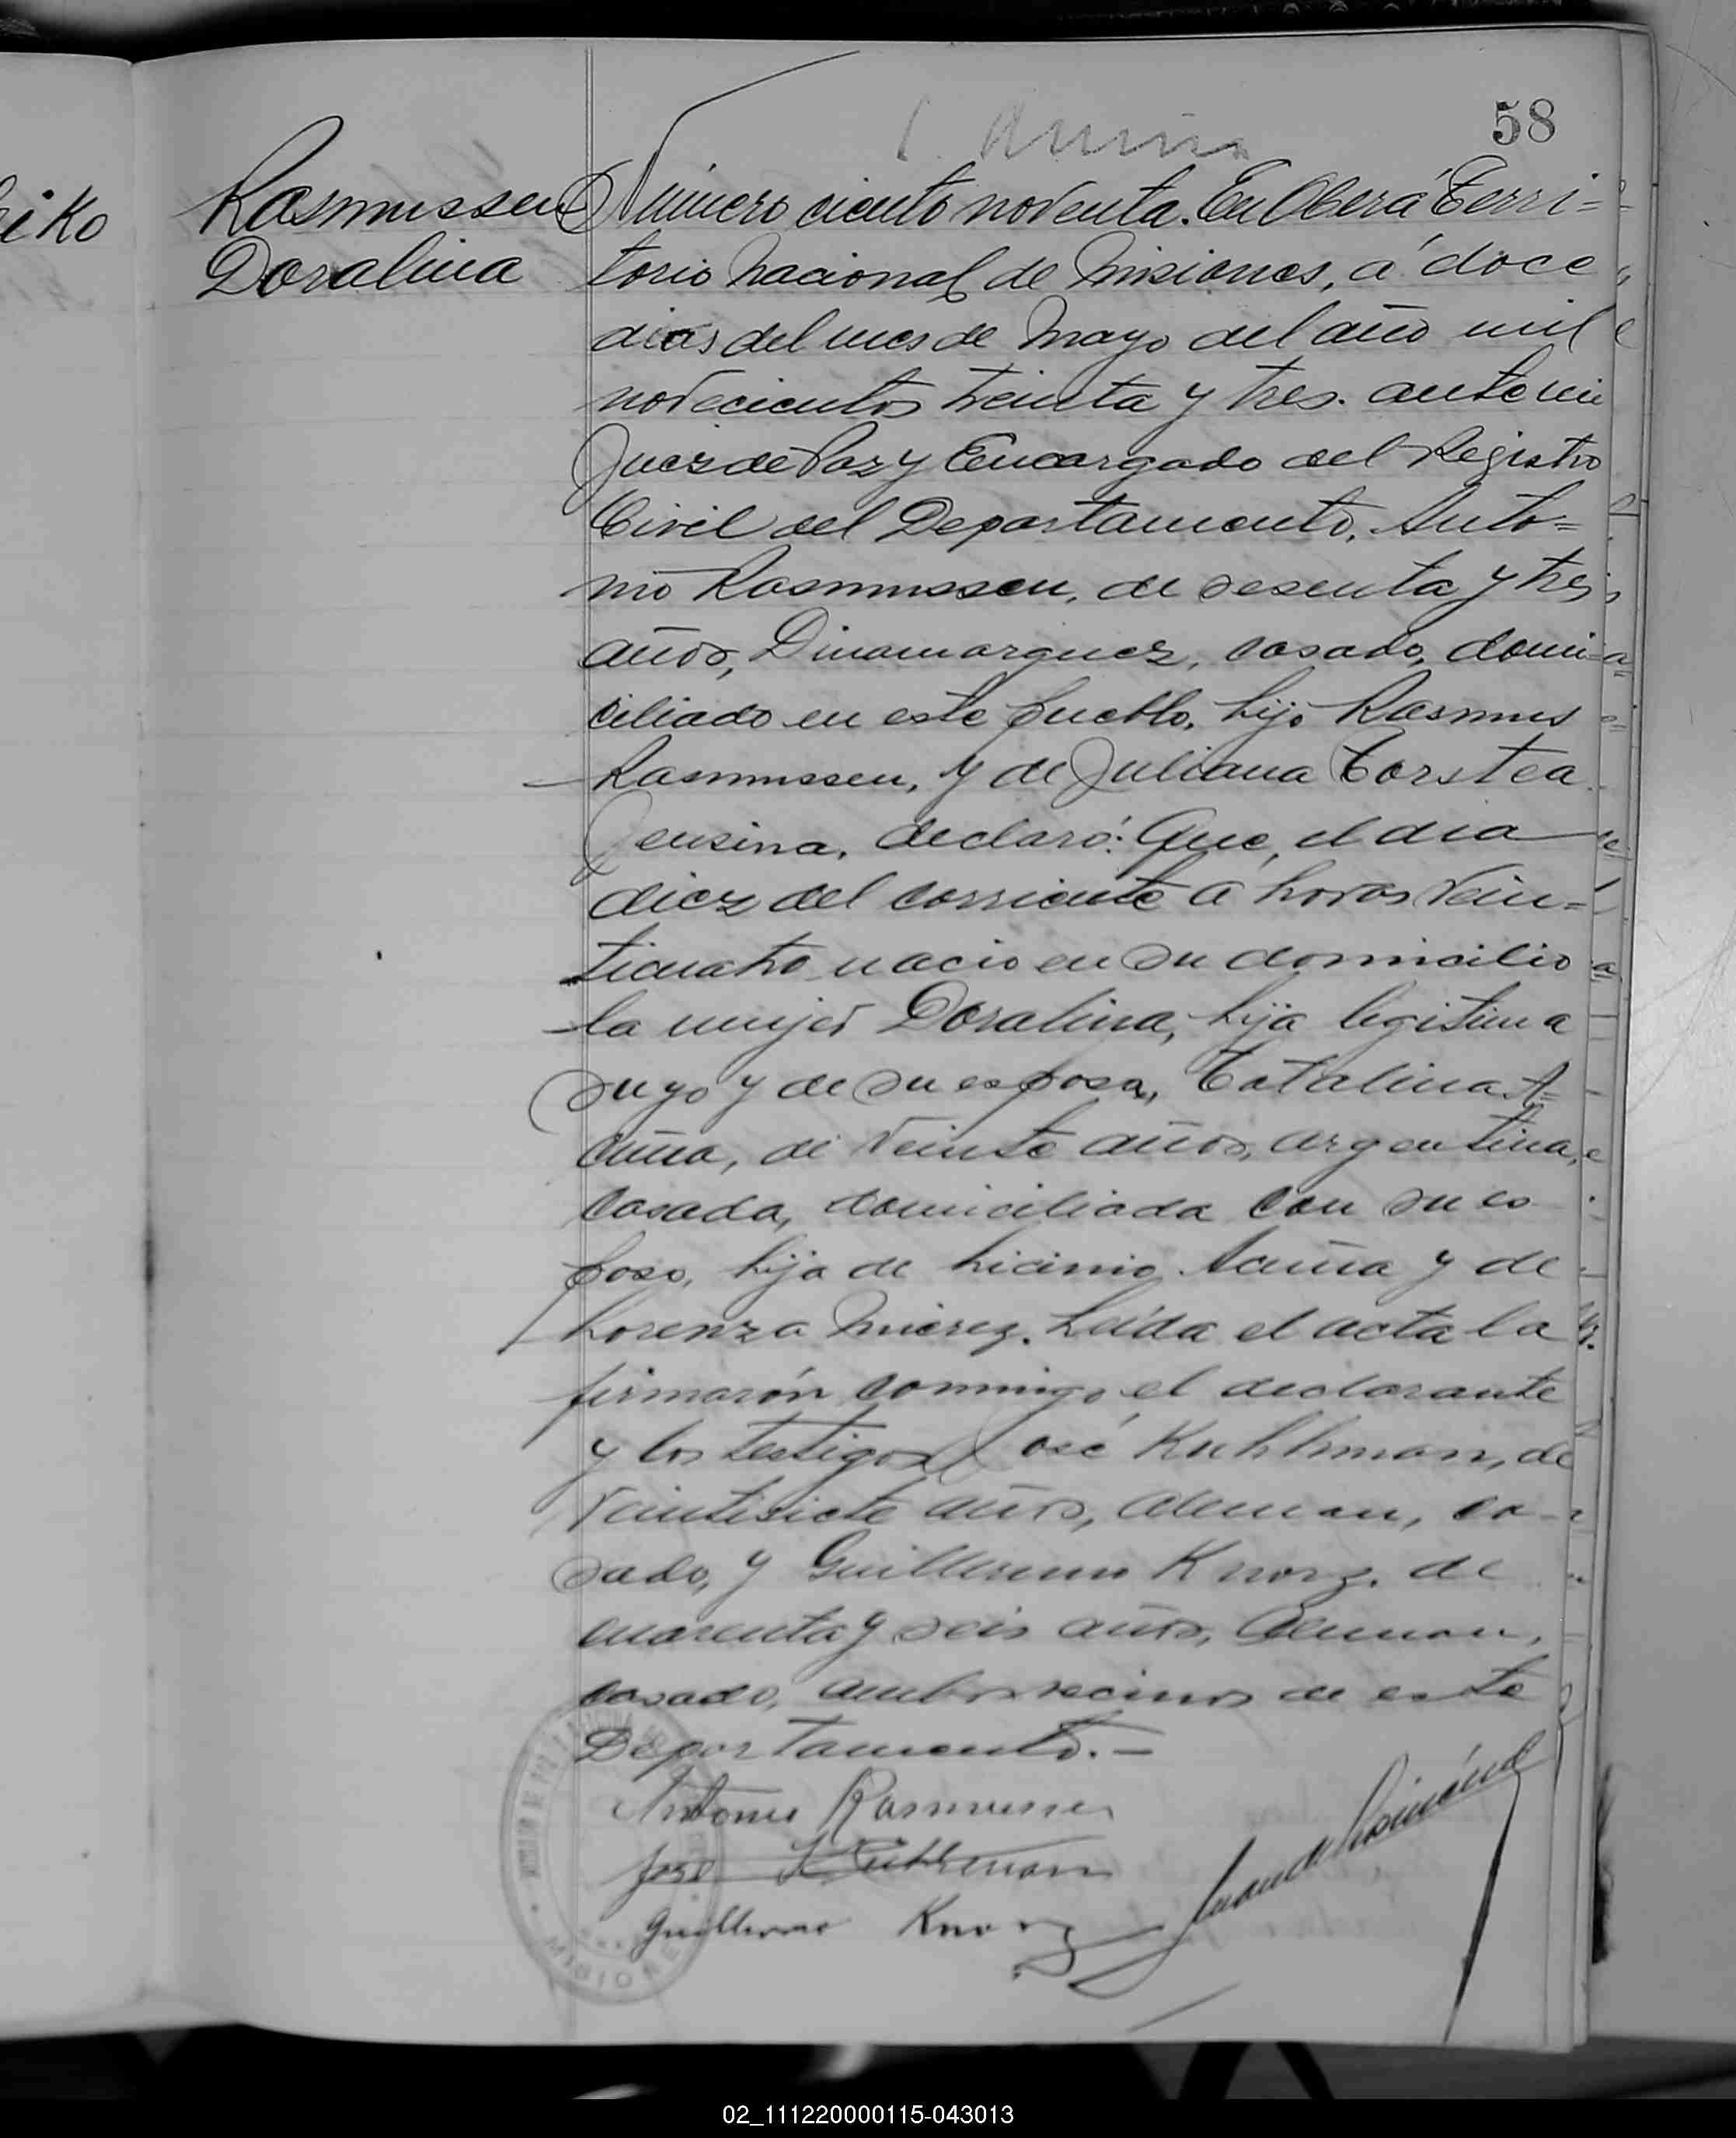 58
Rasmussen
Doralina
iko
Número ciento noventa. En Oberá Terri=
torio Nacional de Misiones, á doce
dias del mes de Mayo del año mil
novecientos treinta y tres. ante mi
Juez de Paz y Encargado del Registro
Civil del Departamento, Anto=
nio Rasmussen, de sesenta y tres
años, Dinamarquez, casado, domi-
ciliado en este pueblo, hijo Rasmus
Rasmussen, y de Juliana Torstea
Jensina, declaró: Que, el dia
diez del corriente a horas vein=
ticuatro nacio en su domicilio
la mujer Doralina, hija legitima
suyo y de su esposa, Catalina A=
cuña, de veinte años, argentina,
casada, domiciliada con su es
poso, hija de Licinio Acuña y de
Lorenza Mierez. Leída el acta la
firmarón conmigo el declarante
y los testigos José Kuhlman, de
veintisiete años, aleman, ca-
sado, y Guillermo Knorz. de
cuarenta y seis años, Aleman,
casado, ambos vecinos de este
Departamento.-
Antonio Rasmussen
José Kuhlman
Guillermo Knorz
MISIONES
02_111220000115-043013